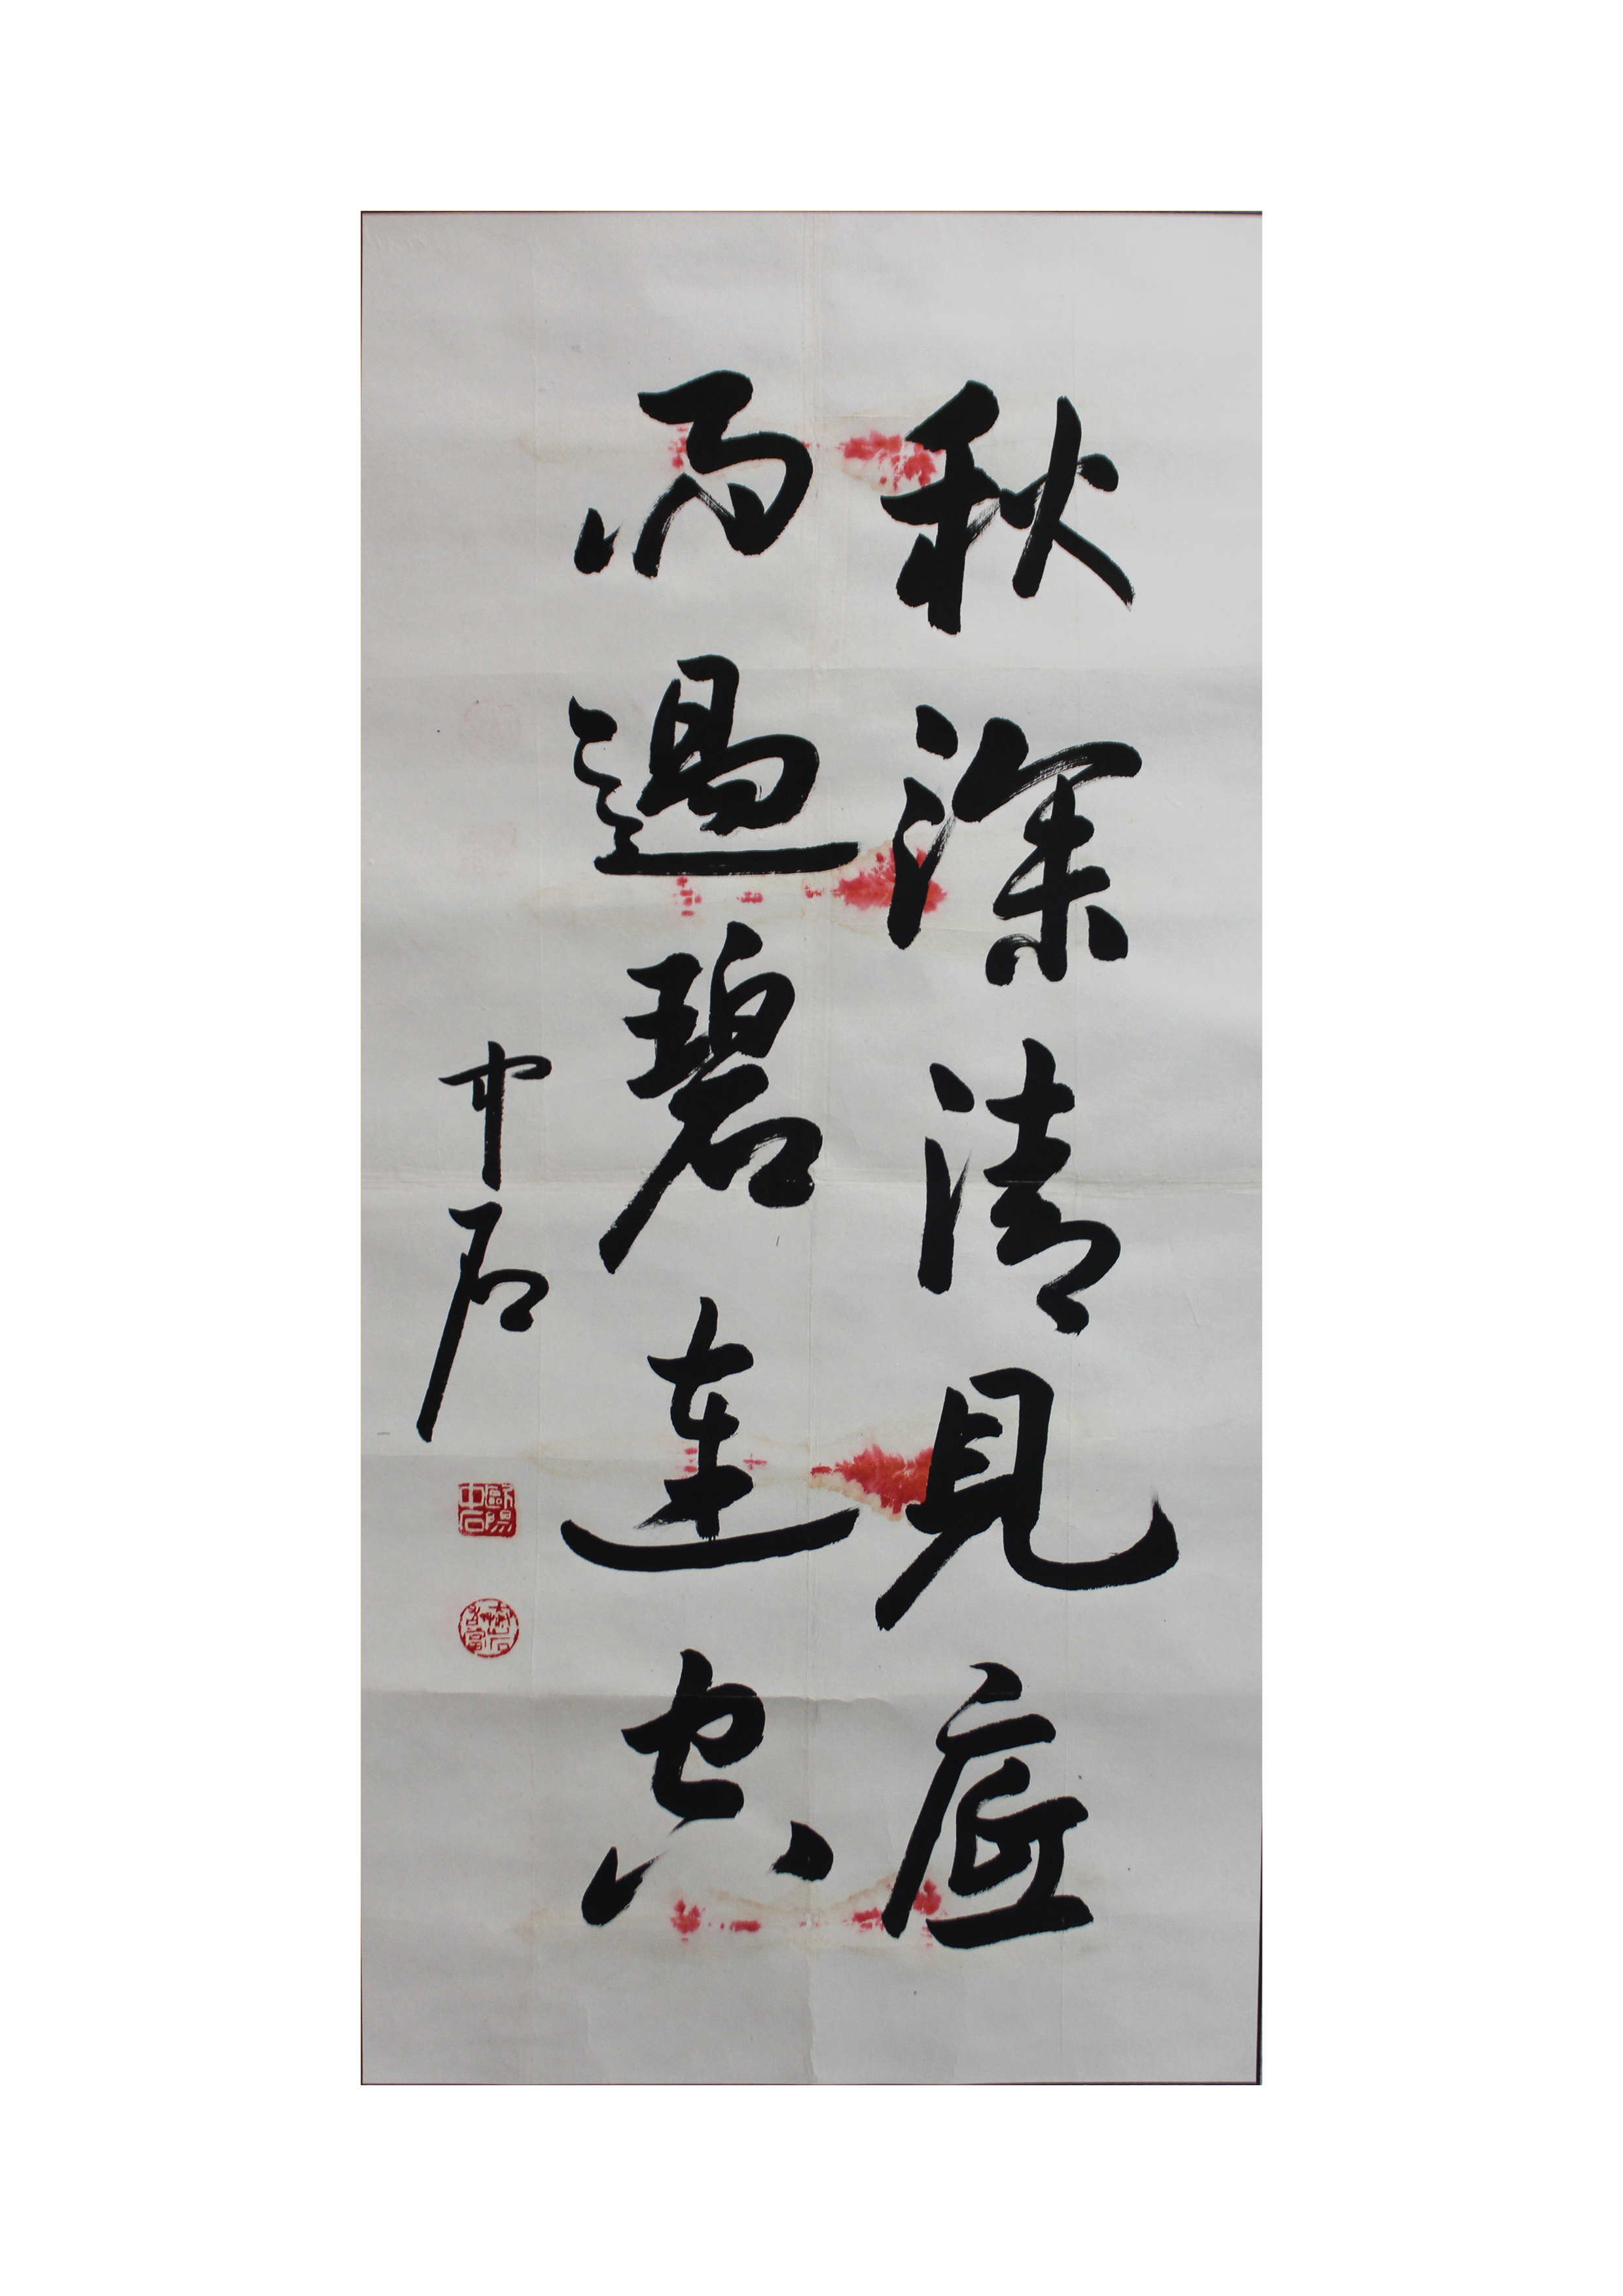 秋深清見底
雨過碧連空
中石
歐陽中石